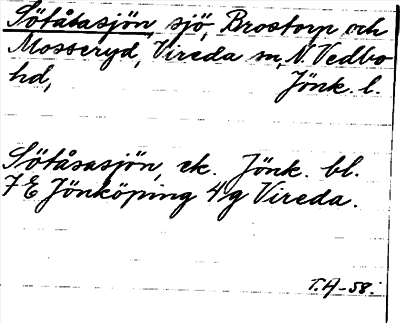 Sötåsasjön, sjö, Brostorp och
Mosseryd, Vireda sn, N. Vedbo
hd, Jönk. l.
Sötåsasjön, ek. Jönk. bl.
7 E Jönköping 4 g Vireda.
T.A-58.